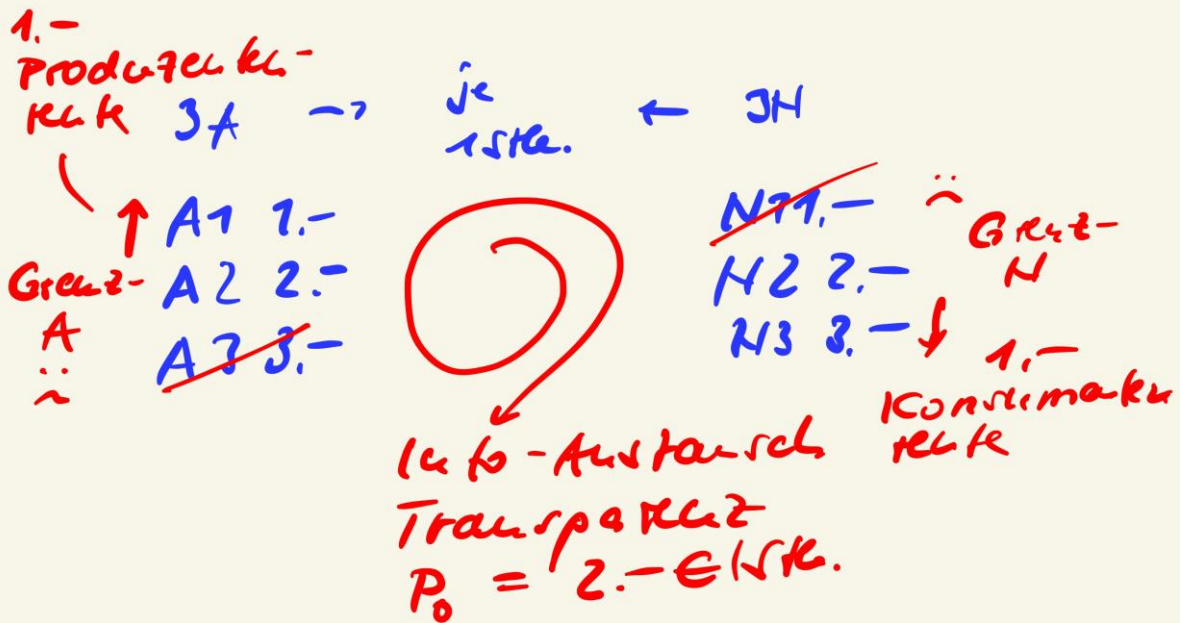 1.-
Produzenten-
rente
3A → je 1 Stk. ← 3N
A1 1.-
A2 2.-
A3 3.-
Grenz-
A
N1 1.-
N2 2.-
N3 3.-
Grenz-
N
1,-
Konsumenten
rente
Info-Austausch
Transparenz
P₀ = 2.- €/Stk.